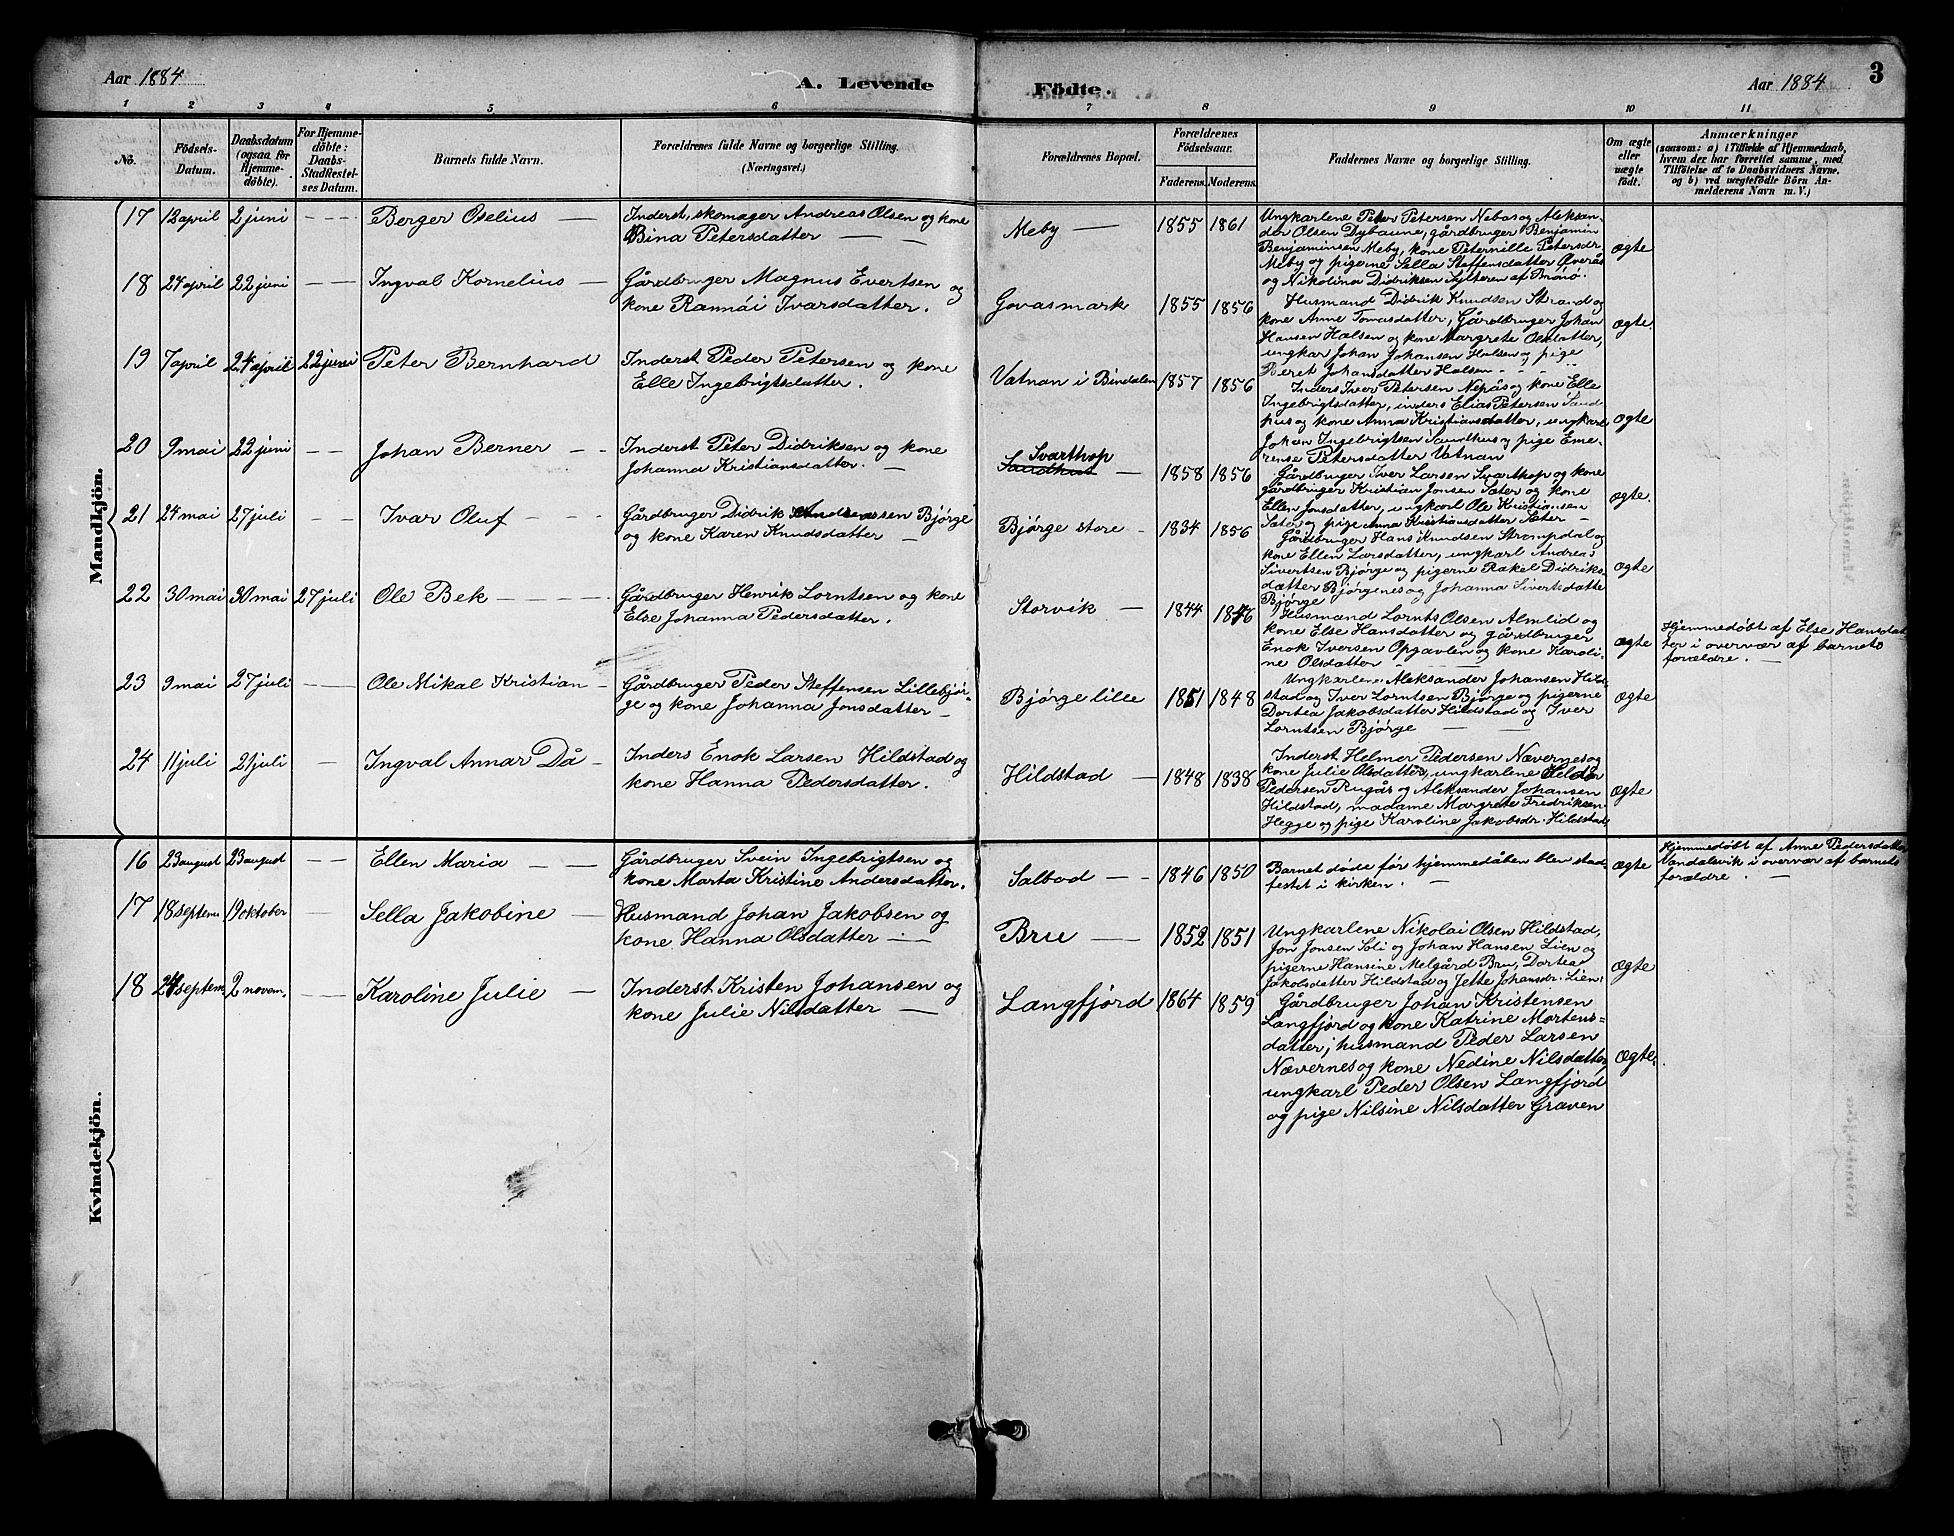 Aar 1884
A. Levende Födte.
Aar 1884
3
1 2 3 4 5 6 7 8 9 10 11
No.
Födsels-
Datum.
Daabsdatum
(ogsaa for
Hjemme-
döbte).
For Hjemme-
döbte:
Daabs-
Stadfæstel-
ses Datum.
Barnets fulde Navn.
Forældrenes fulde Navne og borgerlige Stilling.
(Næringsvei.)
Forældrenes Bopæl.
Forældrenes
Födselsaar.
Faderens. Moderens.
Faddernes Navne og borgerlige Stilling.
Om ægte
eller
uægte
født.
Anmærkninger
(saasom: a) i Tilfælde af Hjemmedaab,
hvem der har forrettet samme, med
Tilföielse af to Daabsvidners Navne,
og b) ved uægtefödte Börn An-
melderens Navn m. V.)
Mandkjön.
17 12 april 2 juni - - - Berger Oselius —
Inderst, skomager Andreas Olsen og kone
Bina Petersdatter — —
Meby — 1855 1861
Ungkarlene Peter Petersen Nebos og Aleksan-
der Olsen Dybaune, gårdbruger Benjamin
Benjaminsen Meby, kone Peternille Petersdr.
Meby og pigerne Sella Steffensdatter Øverås
og Nikolina Didriksen Sylteren af Brønø.
ægte
18 27 april 22 juni - - Ingval Kornelius —
Gårdbruger Magnus Evertsen og
kone Rannái Ivarsdatter.
Govasmark 1855 1856
Husmand Didrik Knudsen Strand og
kone Anne Tomasdatter, Gårdbruger Johan
Hansen Halsen og kone Margrete Olsdatter,
ungkar Johan Johansen Halsen og pige
Beret Johansdatter Halsen - - -
ægte
19 7 april 24 april 22 juni Peter Bernhard
Inderst Peder Petersen og kone
Elle Ingebrigtsdatter.
Vatnan i Bindalen 1857 1856
Inders Iver Petersen Nepås og kone Elle
Ingebrigtsdatter, inders Elias Petersen Sand-
hus og kone Anna Kristiansdatter, ungkarl
Johan Ingebrigtsen Sandhus og pige Eme-
rense Petersdatter Vatnan
ægte
20 9 mai 22 juni - - Johan Berner - -
Inderst Peter Didriksen og kone
Johanna Kristiansdatter. —
Svarthop
Sandhus — 1858 1856
Gårdbruger Iver Larsen Svarthop og kone
gårdbruger Kristian Jonsen Sæter og kone
Ellen Jonsdatter, ungkarl Ole Kristiansen
Sæter og pige Anna Kristiansdatter Sæter —
ægte.
21 24 mai 27 juli - - Ivar Oluf - -
Gårdbruger Didrik Andreassen Bjørge
og kone Karen Knudsdatter —
Bjørge store - 1834 1856
Gårdbruger Hans Knudsen Strompdal og
kone Ellen Larsdatter, ungkarl Andreas
Sivertsen Bjørge og pigerne Rakel Didriks-
dætter Bjørgenes og Johanna Sivertsdatte
Bjørge
ægte
22 30 mai 30 mai 27 juli Ole Bek - - - -
Gårdbruger Henrik Lorntsen og kone
Else Johanna Pedersdatter.
Storvik — 1844 1846
Husmand Lornts Olsen Almlid og
kone Else Hansdatter og gårdbruger
Enok Iversen Opgavlen og kone Karoli-
ne Olsdatter - - -
ægte
Hjemmedøbt af Else Hansdat-
ter i overvær af barnets
forældre. —
23 9 mai 27 juli - - Ole Mikal Kristian -
Gårdbruger Peder Steffensen Lillebjør-
ge og kone Johanna Jonsdatter —
Bjørge lille 1851 1848
Ungkarlene Aleksander Johansen Hild-
stad og Iver Lorntsen Bjørge og pigerne
Dortea Jakobsdatter Hildstad og Iver
Lorntsen Bjørge — —
ægte
24 11 juli 21 juli - Ingval Annar Då -
Inders Enok Larsen Hildstad og
kone Hanna Pedersdatter.
Hildstad — 1848 1838
Inderst Helmer Pedersen Nævernes og
kone Julie Olsdatter, ungkarlene Peder
Pedersen Rugås og Aleksander Johansen
Hildstad, madame Margrete Fredriksen
Hegge og pige Karoline Jakobsdr. Hildstad
ægte
Kvindekjön.
16 23 august 23 august - - Ellen Maria — —
Gårdbruger Svein Ingebrigtsen og
kone Marta Kristine Andersdatter.
Salbod — - 1846 1850
Barnet døde før hjemmedåben blev stad-
festet i kirken. —
ægte
Hjemmedøbt af Anne Pedersdatter
Vandalsvik i overvær af barnets
forældre. —
17 18 septem 19 oktober — Sella Jakobine —
Husmand Johan Jakobsen og
kone Hanna Olsdatter — —
Bru — 1852 1851
Ungkarlene Nikolai Olsen Hildstad,
Jon Jonsen Soli og Johan Hansen Lien og
pigerne Hansine Melgård Bru, Dortea
Jakobsdatter Hildstad og Jette Johansdr. Lien.
ægte
18 24 septem 2 novem. - - Karoline Julie —
Inderst Kristen Johansen og
kone Julie Nilsdatter —
Langfjord 1864 1859
Gårdbruger Johan Kristensen
Langfjord og kone Katrine Mortens-
datter, husmand Peder Larsen
Nævernes og kone Nedine Nilsdatter,
ungkarl Peder Olsen Langfjord
og pige Nilsine Nilsdatter Graven
ægte.